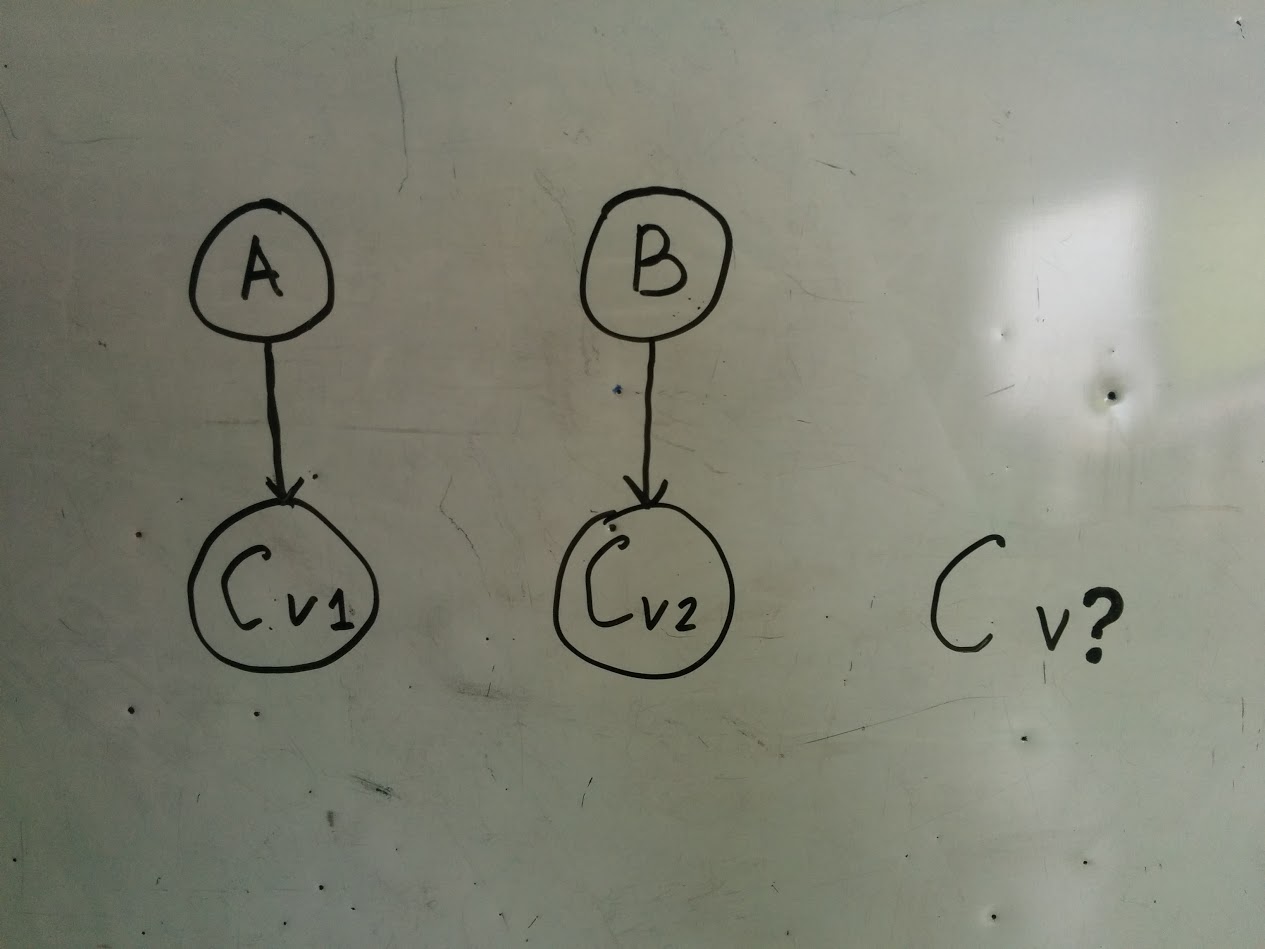 A B
Cv1 Cv2 Cv?